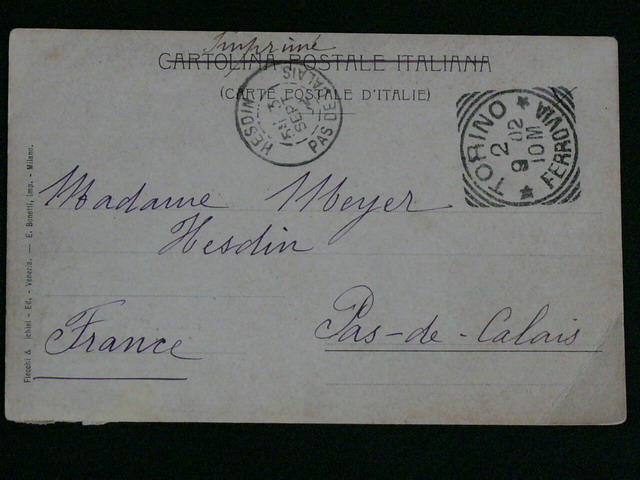 Imprimé
CARTOLINA POSTALE ITALIANA
(CARTE POSTALE D'ITALIE)
HESDIN
SEPT
PAS DE CALAIS
TORINO
2
9 02
10M
FERROVIA
Madame Meyer
Hesdin
France
Pas-de-Calais
Fiecchi & ichini - Ed. - Venezia. — E. Bonetti, Imp. - Milano.